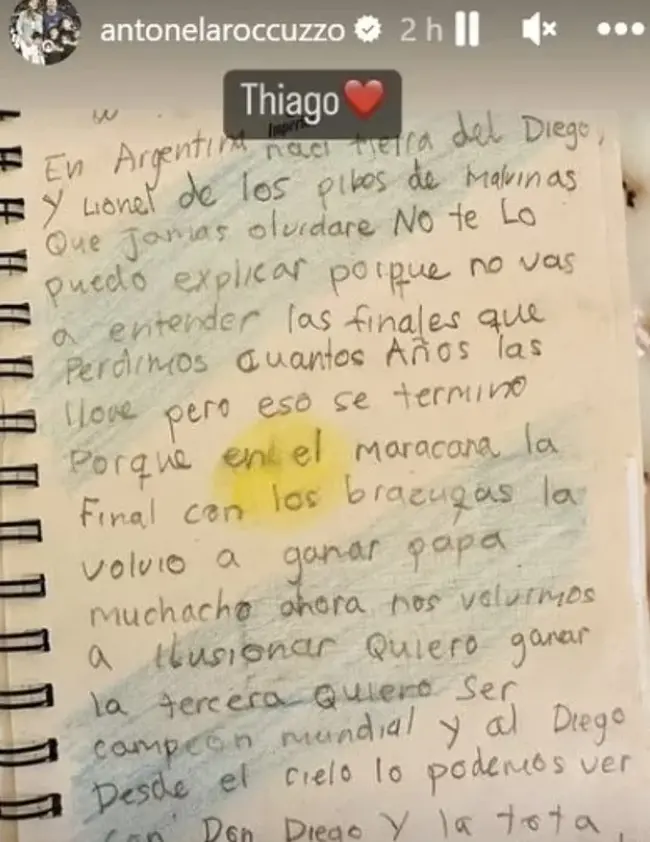 antonelaroccuzzo 2 h
Thiago
En Argentina naci tierra del Diego,
Y Lionel de los pibes de Malvinas
Que Jamas olvidare No te Lo
puedo explicar porque no vas
a entender las finales que
Perdimos Cuantos Años las
llore pero eso se termino
Porque en el maracana la
Final con los brazugas la
volvio a ganar papa
muchacho ahora nos volvimos
a Ilusionar Quiero ganar
la tercera Quiero Ser
campeon mundial y al Diego
Desde el cielo lo podemos ver
con Don Diego Y la tota,